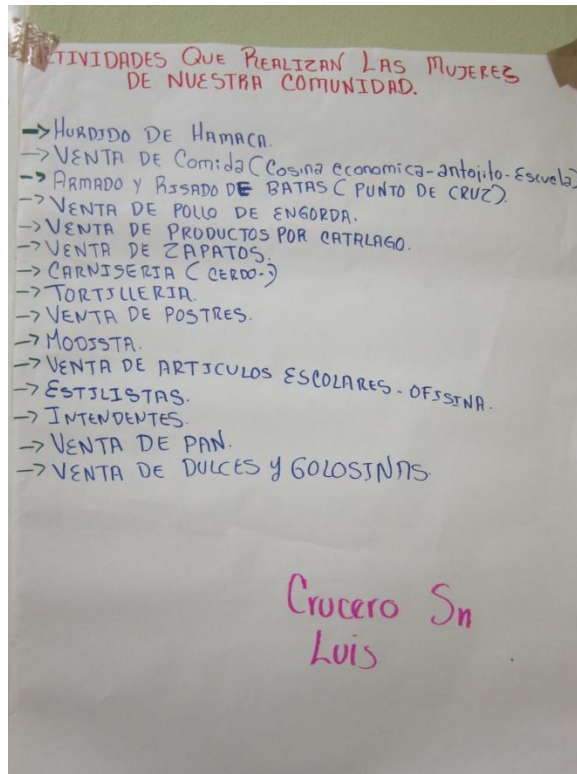 ACTIVIDADES QUE REALIZAN LAS MUJERES
DE NUESTRA COMUNIDAD.
→ HURDIDO DE HAMACA.
→ VENTA DE Comida (Cosina economica-antojito-Escuela)
→ ARMADO Y RISADO DE BATAS (PUNTO DE CRUZ).
→ VENTA DE POLLO DE ENGORDA.
→ VENTA DE PRODUCTOS POR CATALAGO.
→ VENTA DE ZAPATOS.
→ CARNISERIA (CERDO-)
→ TORTILLERIA.
→ VENTA DE POSTRES.
→ MODISTA.
→ VENTA DE ARTICULOS ESCOLARES - OFISINA.
→ ESTILISTAS.
→ INTENDENTES.
→ VENTA DE PAN.
→ VENTA DE DULCES Y GOLOSINAS.
Crucero Sn
Luis